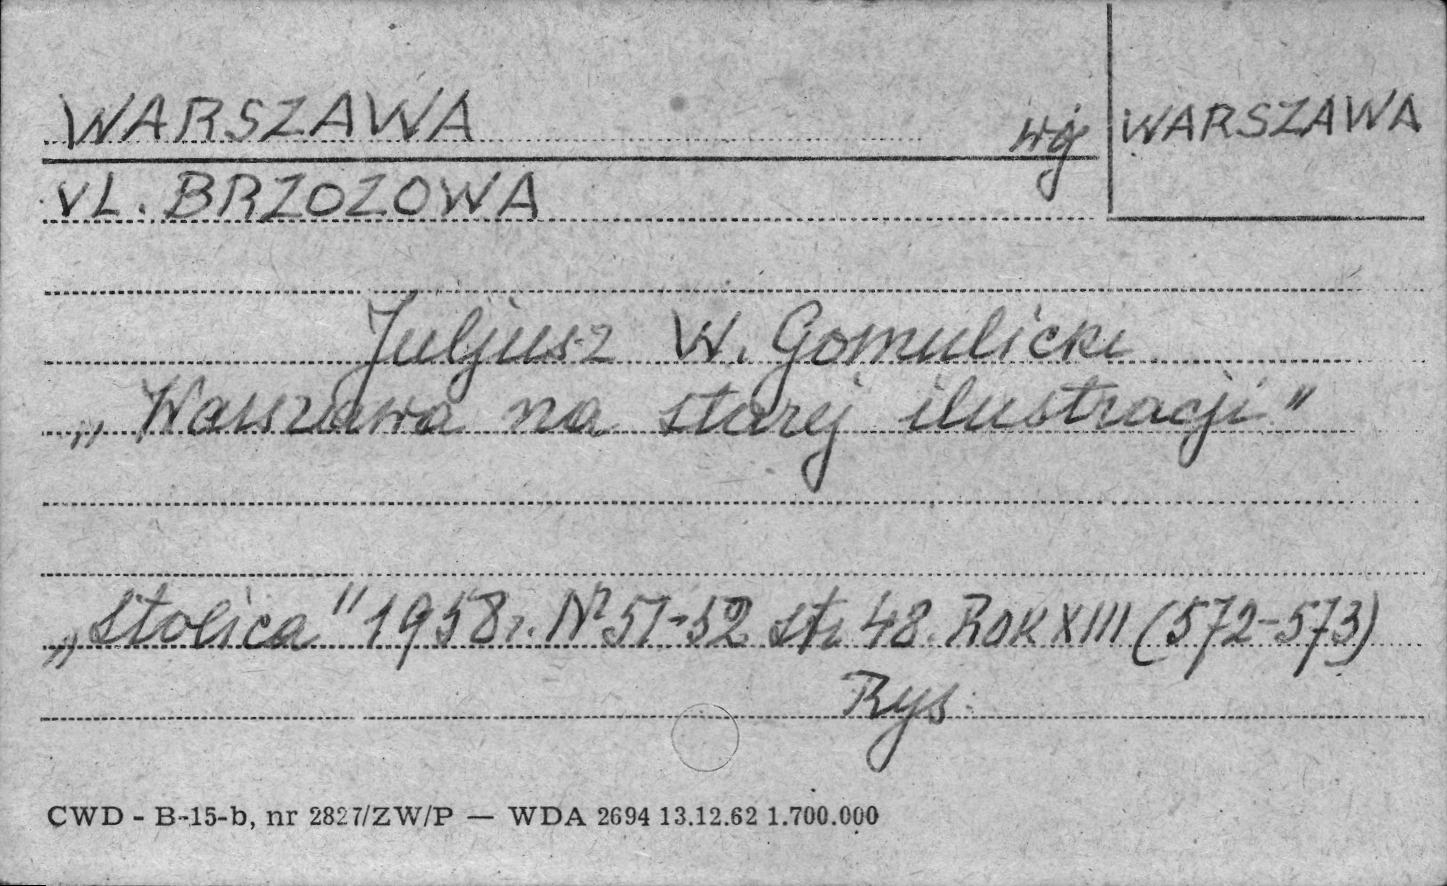 WARSZAWA wg WARSZAWA
UL. BRZOZOWA
Juljusz W. Gomulicki
„Warszawa na starej ilustracji"
„Stolica" 1958 r. Nº 51-52 str 48. ROK XIII (572-573)
Rys.
CWD - B-15-b, nr 2827/ZW/P — WDA 2694 13.12.62 1.700.000